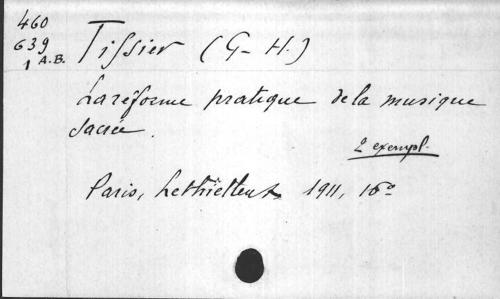 460
639
1 A.B.
Tissier (G-H.)
La réforme pratique de la musique
sacrée.
2 exempl.
Paris, Lethielleux, 1911, 16º